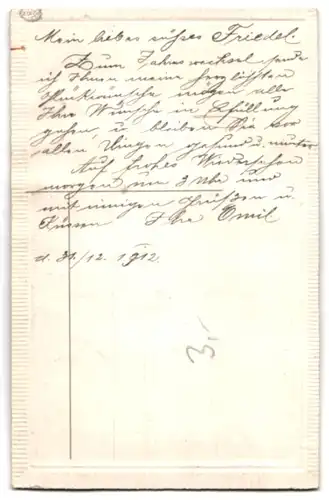 Mein liebes süßes Friedel.
Zum Jahreswechsel sende
ich Ihnen meine herzlichsten
Glückwünsche mögen alle
Ihre Wünsche in Erfüllung
gehen, u. bleiben Sie vor
allen Dingen gesund u. munter
Auf frohes Wiedersehen
morgen um 3 Uhr und
mit innigen Grüßen u.
Küssen Ihr Emil
d. 31./12. 1912.
3,-